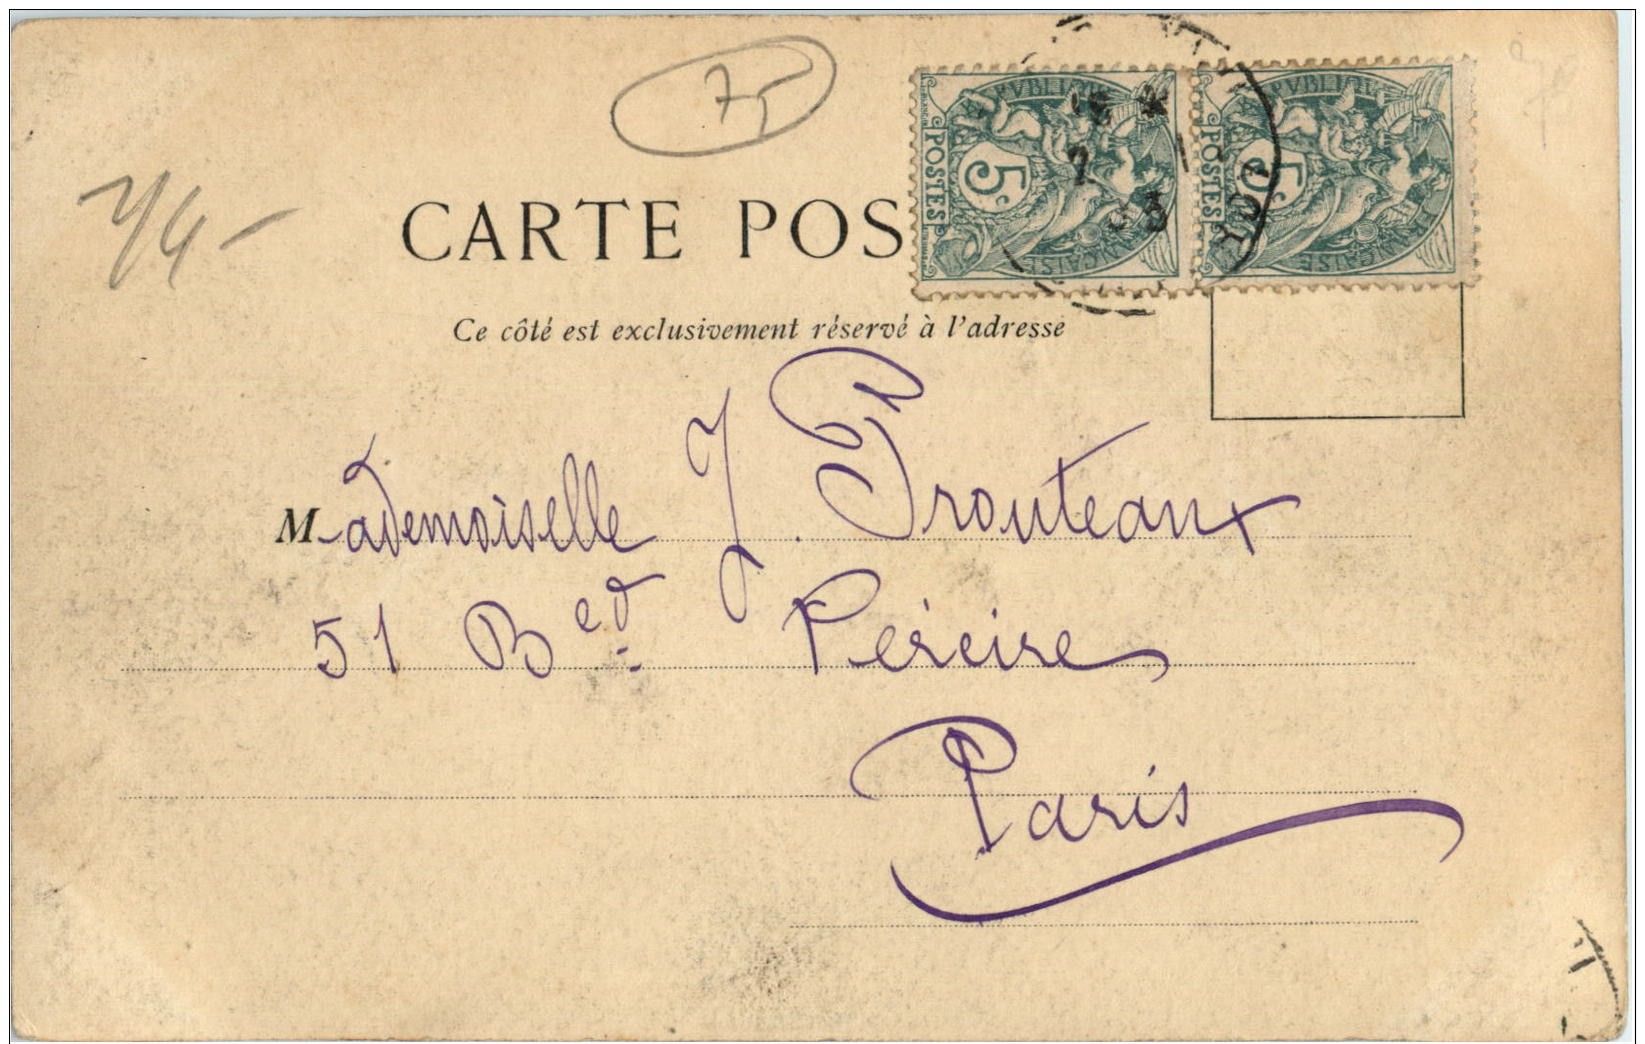 75
CARTE POS
RÉPUBLIQUE FRANÇAISE
POSTES
5c
RÉPUBLIQUE FRANÇAISE
POSTES
5c
Ce côté est exclusivement réservé à l'adresse
Mademoiselle J. Prouteaux
51 Bed Péreire
Paris